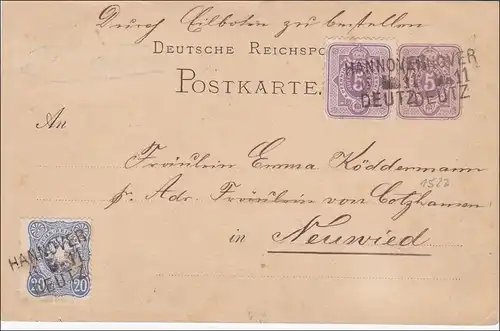 Durch Eilboten zu bestellen
DEUTSCHE REICHSPO
POSTKARTE.
5 5
HANNOVER HANNOVER
VI 11
DEUTZ DEUTZ
An
Fräulein Emma Köddermann
1522
p. Adr. Fräulein von Cotzhausen
in Neuwied
HANNOVER
VI
DEUTZ
20 20